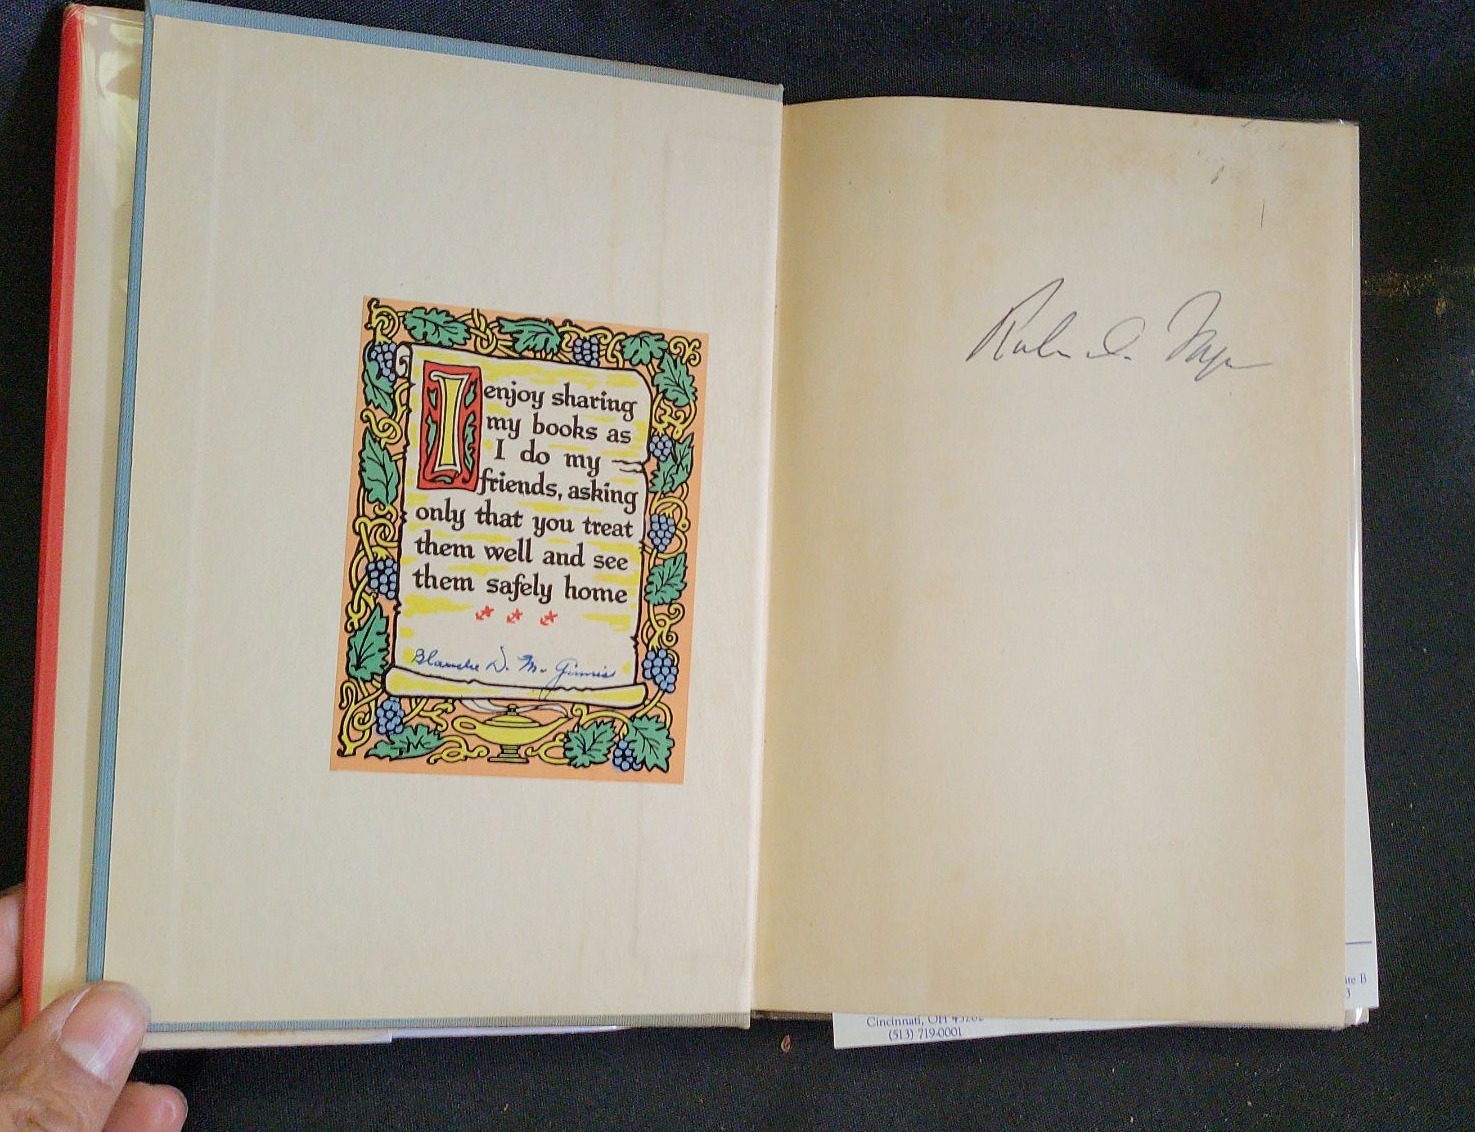 I enjoy sharing
my books as
I do my
friends, asking
only that you treat
them well and see
them safely home
Blanche D. McGinnis
ite B
3
Cincinnati, OH 45202
(513) 719-0001